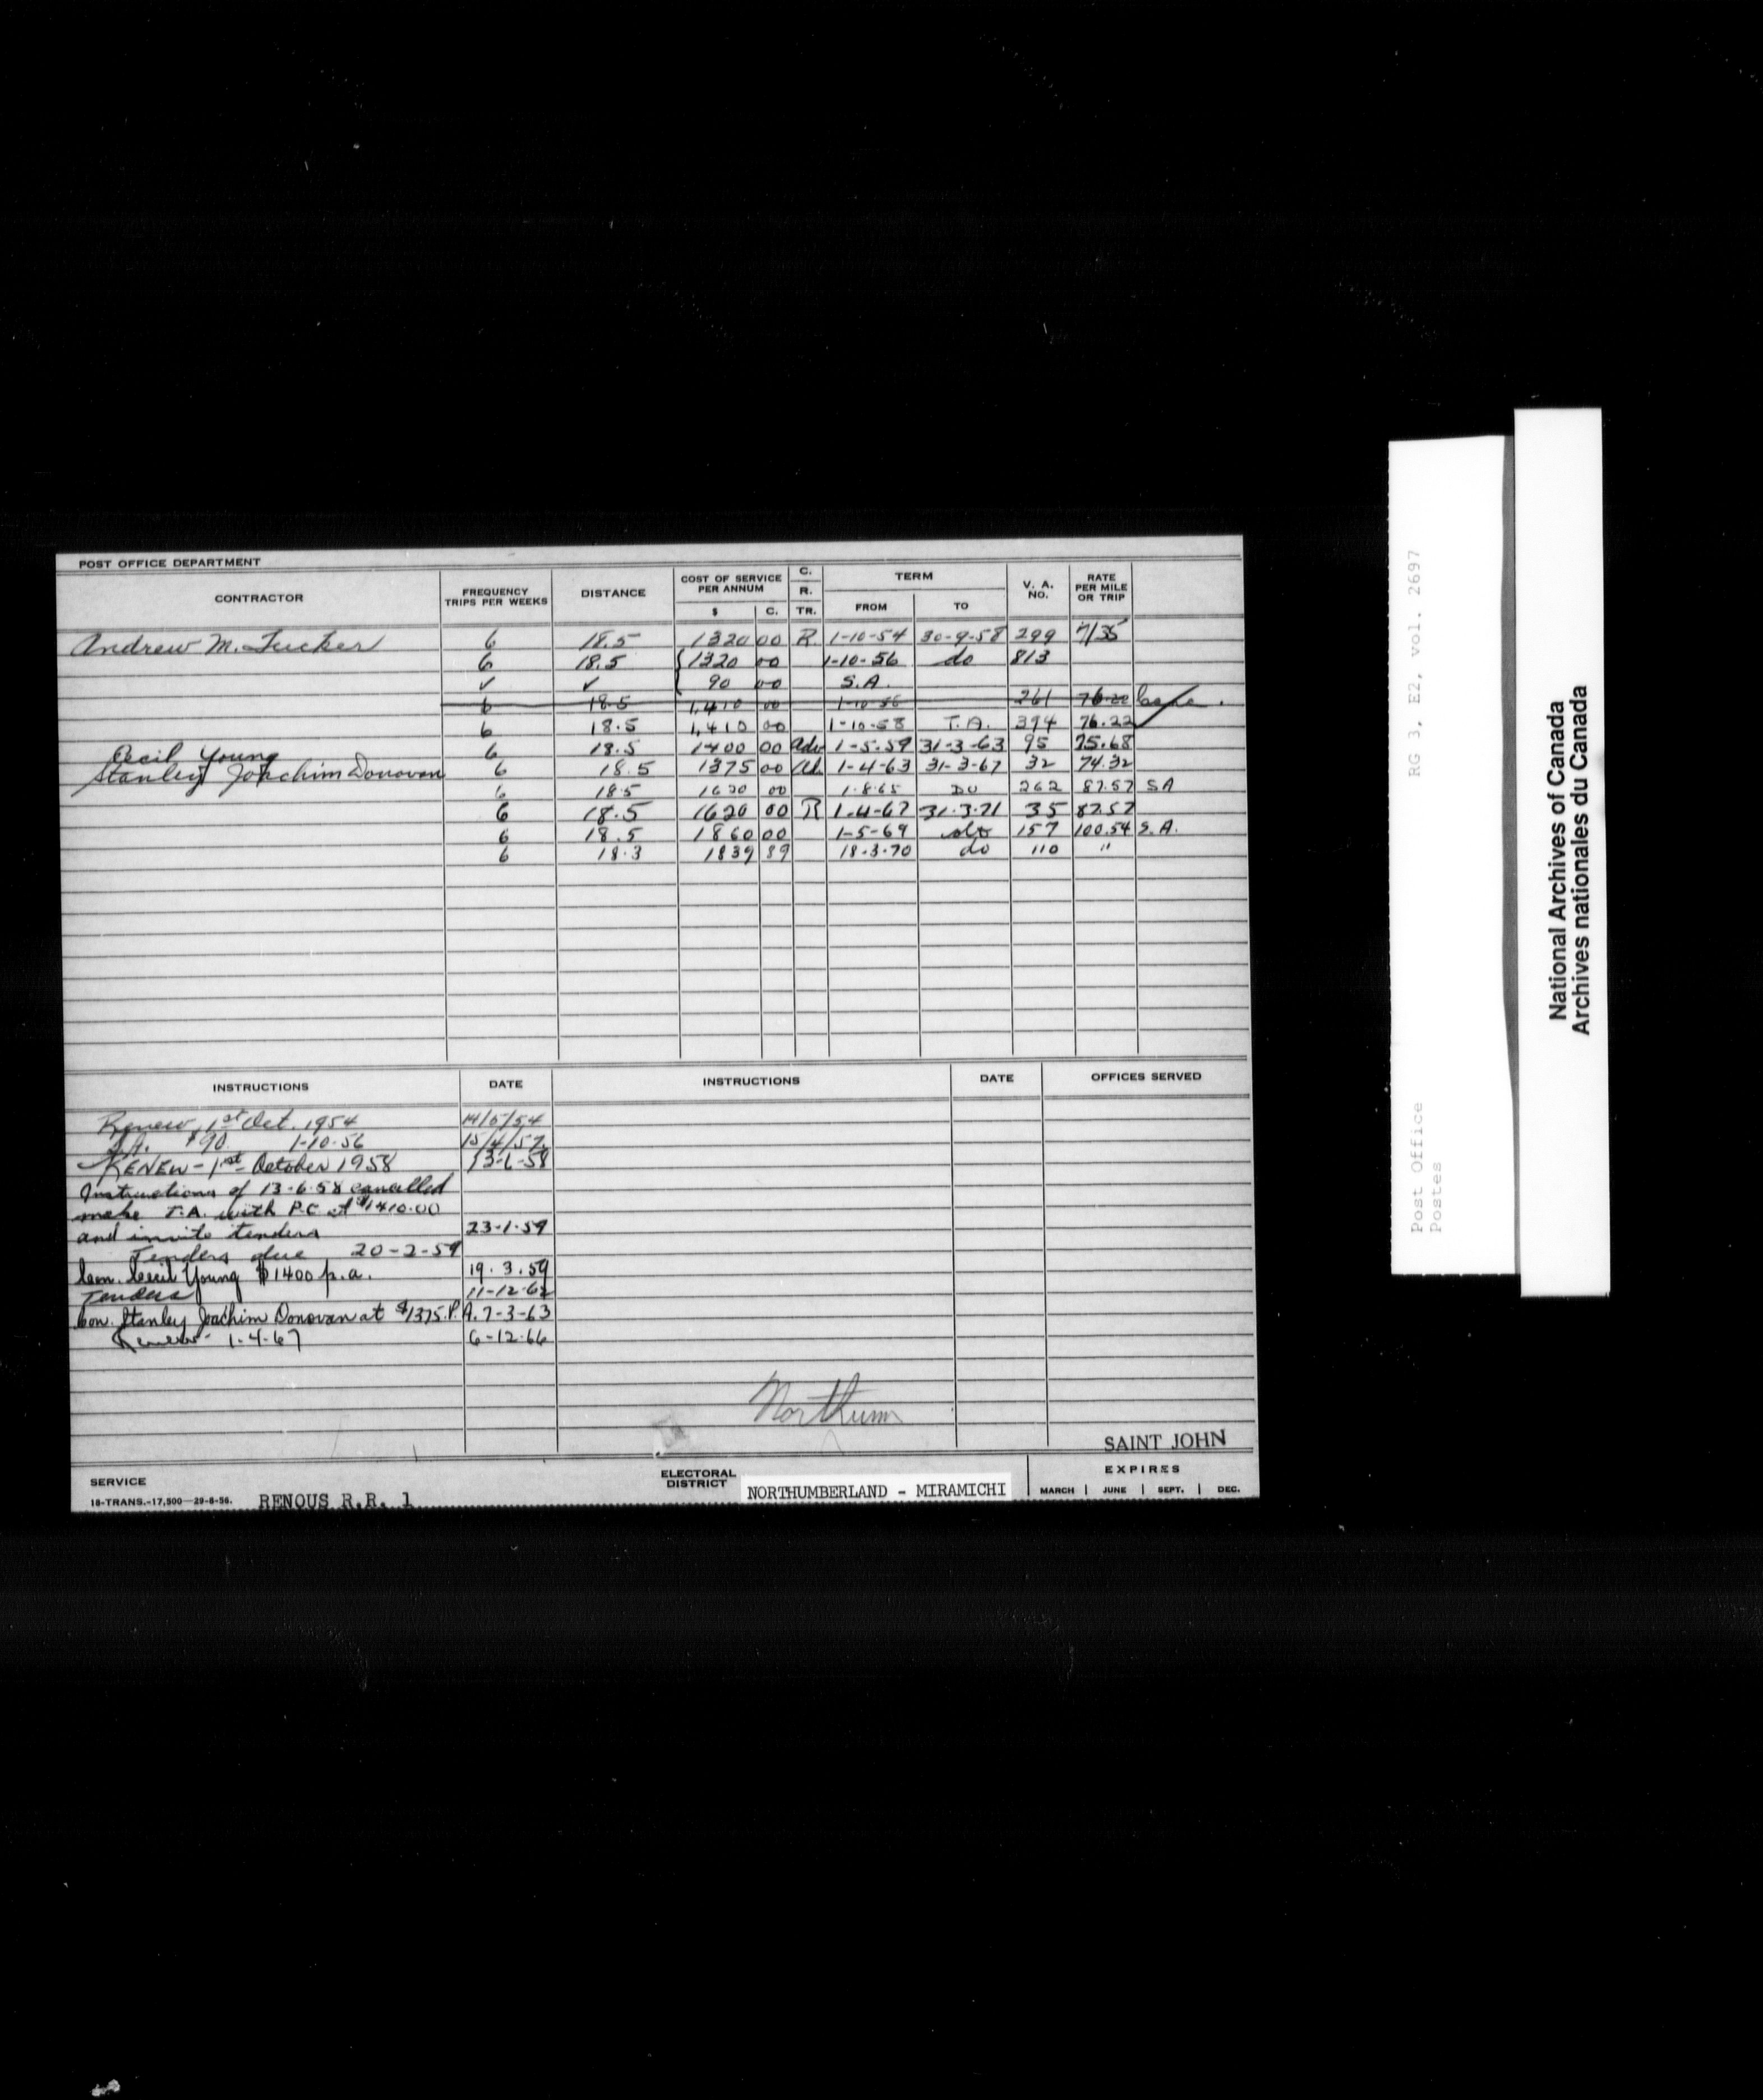 POST OFFICE DEPARTMENT
CONTRACTOR FREQUENCY TRIPS PER WEEKS DISTANCE COST OF SERVICE PER ANNUM $ C. C. R. TR. TERM FROM TO V. A. NO. RATE PER MILE OR TRIP
Andrew M. Tucker 6 18.5 1320 00 R. 1-10-54 30-9-58 299 71/35
6 18.5 1320 00 1-10-56 do 813
✓ ✓ 90 00 S.A.
6 18.5 1,410 00 1-10-58 261 76.22
6 18.5 1,410 00 1-10-58 T.A. 394 76.22
Cecil Young 6 18.5 1400 00 Adv 1-5-59 31-3-63 95 75.68
Stanley Joachim Donovan 6 18.5 1375 00 Ad. 1-4-63 31-3-67 32 74.32
6 18.5 1620 00 1.8.65 DO 262 87.57 SA
6 18.5 1620 00 R 1-4-67 31.3.71 35 87.57
6 18.5 1860 00 1-5-69 do 157 100.54 S.A.
6 18.3 1839 89 18.3.70 do 110 "
INSTRUCTIONS DATE INSTRUCTIONS DATE OFFICES SERVED
Renew, 1st Oct. 1954 14/5/54
S.A. $90. 1-10-56 15/4/57
RENEW - 1st October 1958 13-6-58
Instructions of 13-6-58 cancelled
make T.A. with P.C. at $1410.00
and invite tenders 23-1-59
Tenders due 20-2-59
Con. Cecil Young $1400 p.a. 19.3.59
Tenders 11-12-62
Con. Stanley Joachim Donovan at $1375. P.A. 7-3-63
Renew 1-4-67 6-12-66
Northum
SAINT JOHN
SERVICE
18-TRANS.-17,500—29-8-56. RENOUS R.R. 1
ELECTORAL DISTRICT NORTHUMBERLAND - MIRAMICHI
EXPIRES
MARCH | JUNE | SEPT. | DEC.
Post Office RG 3, E2, vol. 2697
Postes
National Archives of Canada
Archives nationales du Canada